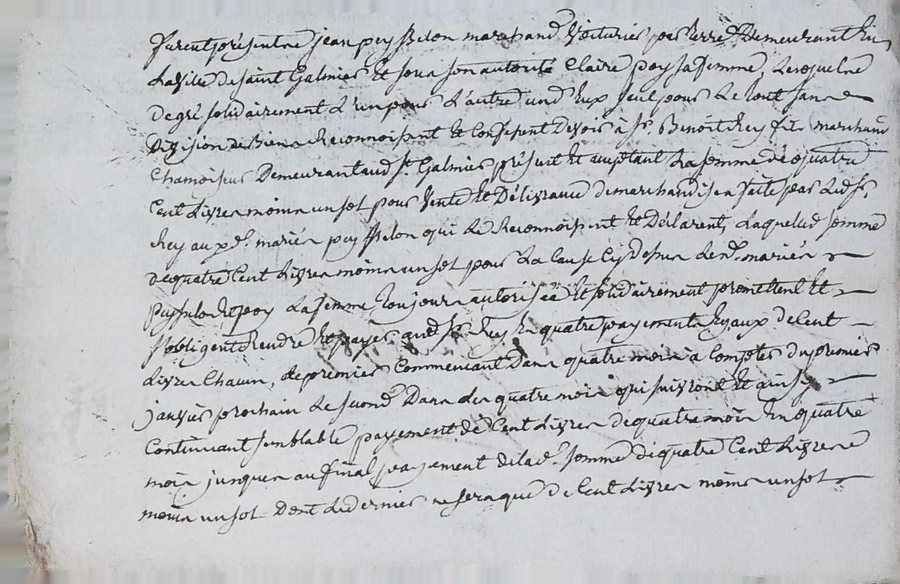 furent présents jean puy fillon marchand voiturier par terre demeurant en
la ville de saint Galmier et sous son autorité Claire poy sa femme, lesquels
de gré solidairement l'un pour l'autre un d'eux seul pour le tout sans
division de biens reconnoissent et confessent devoir à sr. Benoit Rey fils marchand
chamoiseur demeurant aud st. Galmier présent et acceptant la somme de quatre
cent livres moins un sol pour vente et délivrance de marchandises faite par led sr.
Rey aux pd. mariés puy fillon qui le reconnoissent et déclarent, laquelle somme
de quatre cent livres moins un sol pour la cause cy dessus lesd. mariés
puy fillon et poy sa femme toujours autorisée et solidairement promettent et
s'obligent rendre et payer aud sr. Rey en quatre payements égaux de cent
livres chacun, le premier commencant dans quatre mois à compter du premier
janvier prochain le second dans les quatre mois qui suivront et ainsi
continuant semblable payement de cent livres de quatre mois en quatre
mois jusques au final payement de lad. somme de quatre cent livres
moins un sol dont le dernier ne sera que de cent livres moins un sol